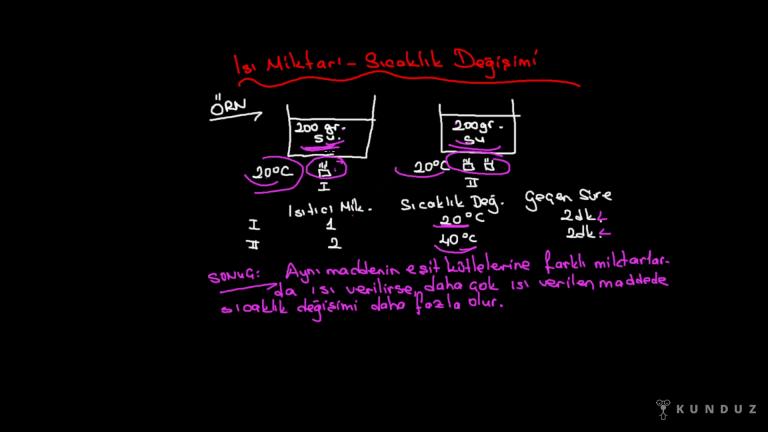 Isı Miktarı - Sıcaklık Değişimi
ÖRN
200 gr.
su.
200gr.
su
20°C
I
20°C
II
Isıtıcı Mik.
Sıcaklık Değ.
Geçen Süre
I 1 20°C 2dk.
II 2 40°C 2dk.
SONUÇ: Aynı maddenin eşit kütlelerine farklı miktarlar-
da ısı verilirse, daha çok ısı verilen maddede
sıcaklık değişimi daha fazla olur.
KUNDUZ